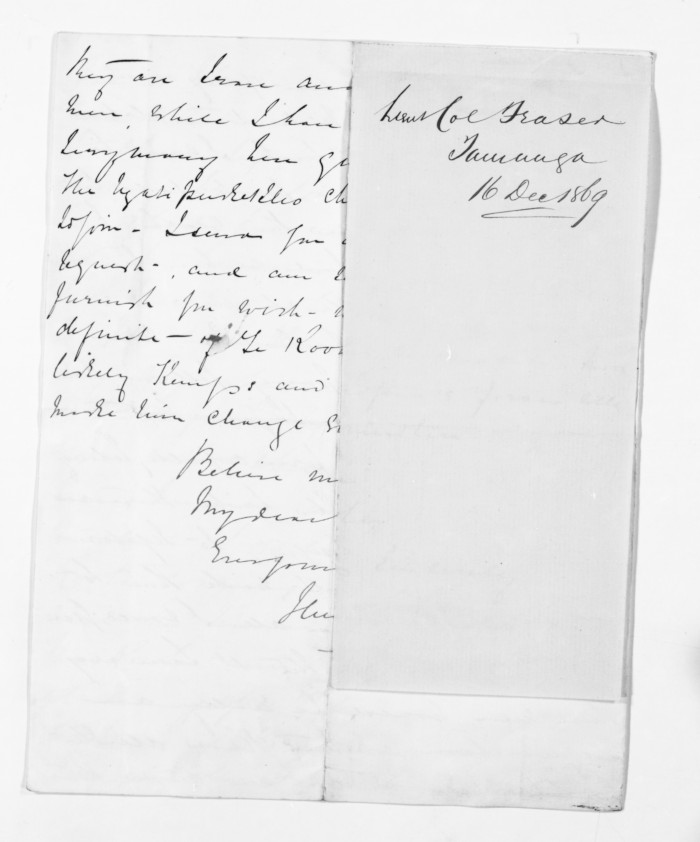 They are Iron and
men, while I have
The Ngatipukekeo ch
to join - I send for
request -, and am
furnish for wish -
definite - of Te Koo
likely Kemps and
make him change
Believe m
My dear
Ever your
Lieut Col Fraser
Tauranga
16 Dec 1869